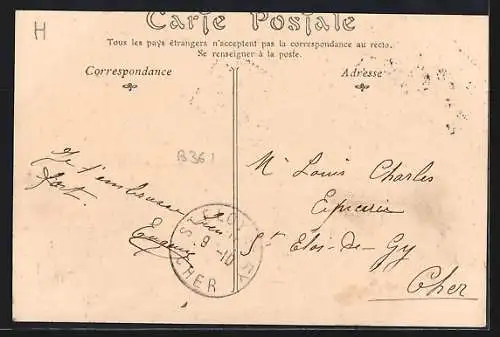 H
Carte Postale
Tous les pays étrangers n'acceptent pas la correspondance au recto.
Se renseigner à la poste.
Correspondance
Adresse
B361
Je t'embrasse bien
fort.
Eugénie
Mr Louis Charles
Epicerie
St Eloi-de-Gy
Cher
9 -10
CHER